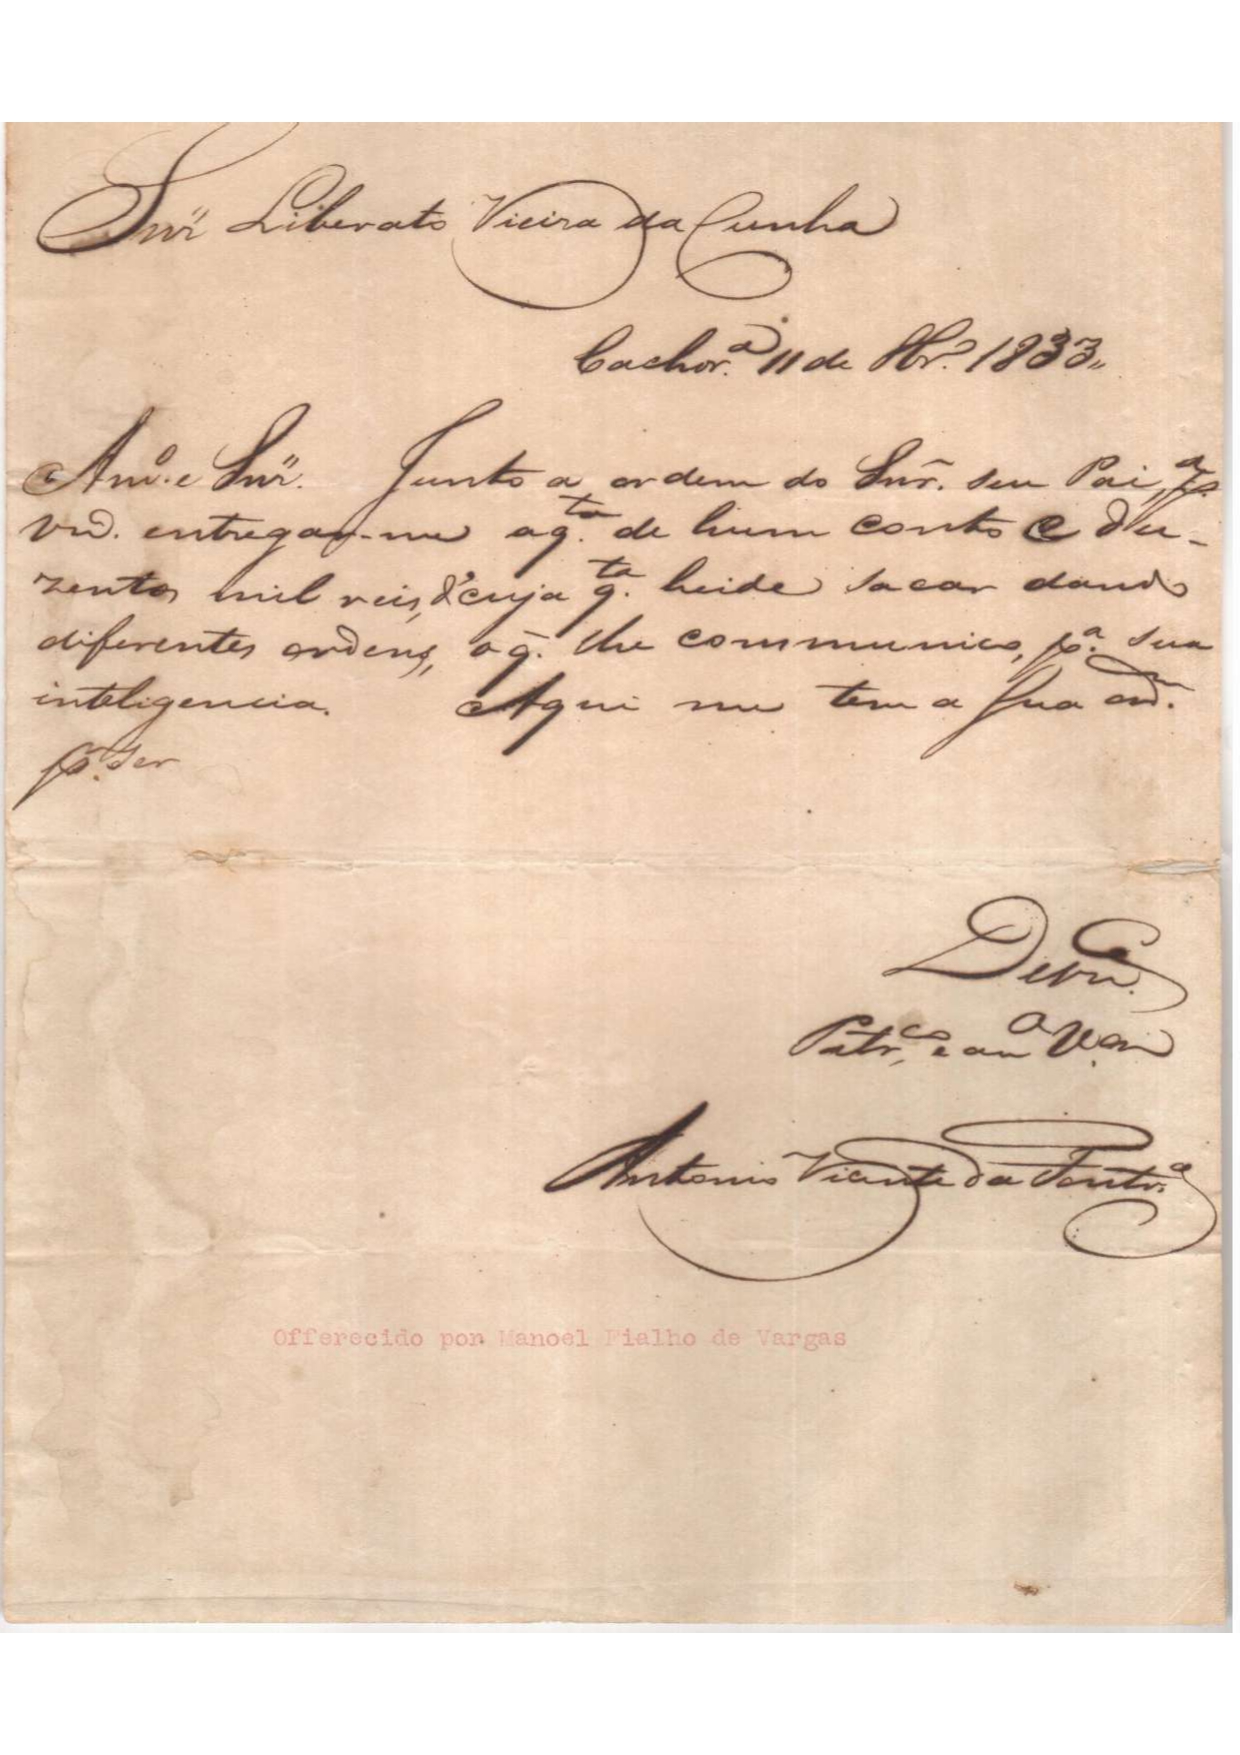 Snr̃ Liberato Vieira da Cunha
Cachor.ª 11 de Abr.º 1833,,
Am.º e Snr̃. Junto a ordem do Snr̃. seu Pai, p.ª
Vm̃. entregar-me a q.ta de hum conto e du-
zentos mil reis, d'cuja q.ta heide sacar dando
diferentes ordens, o q̃. lhe communico, p.ª sua
inteligencia. Aqui me tem a sua ord.m
p.ª ser
De Vm.ce
Patr.co e am.º V.or
Antonio Vicente da Fontr.ª
Offerecido por Manoel Fialho de Vargas